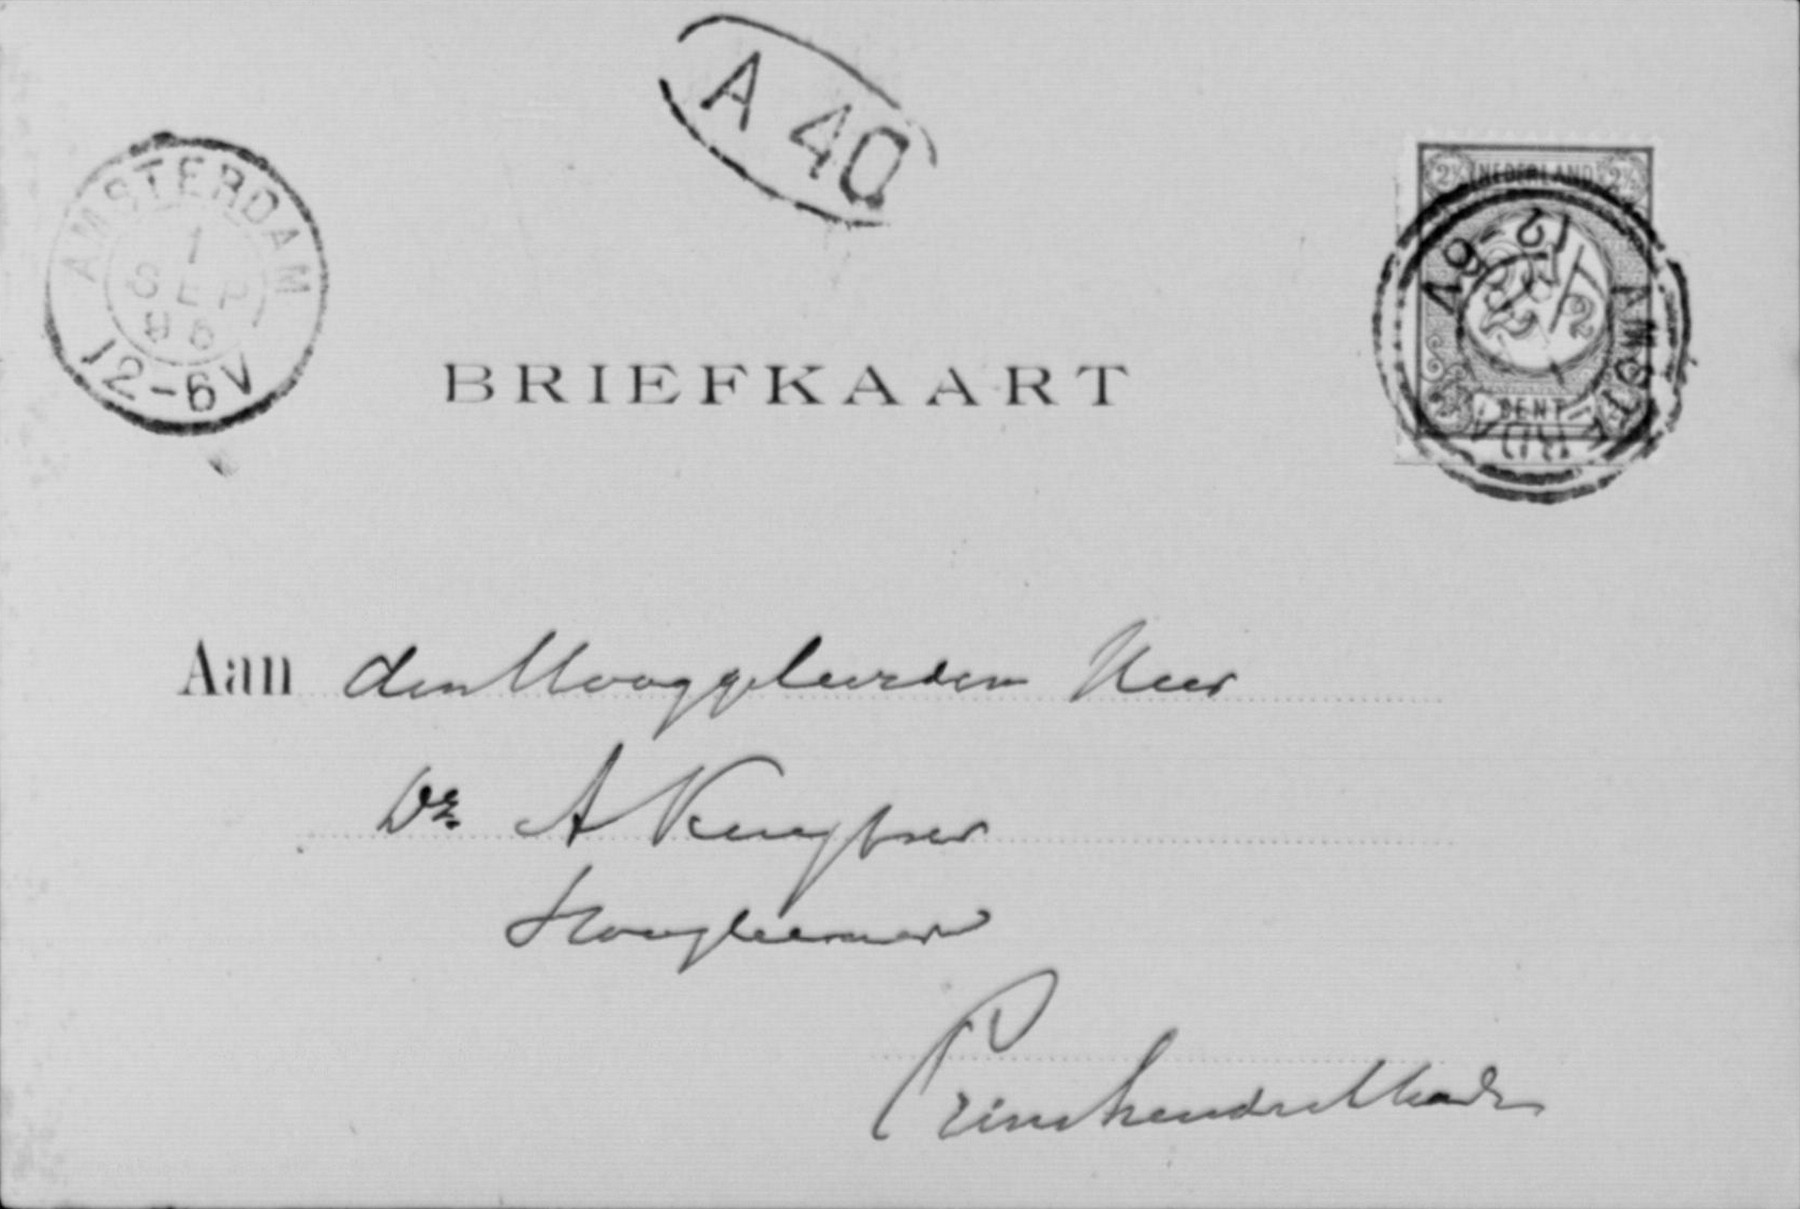 A 40
AMSTERDAM
1
SEP
95
12-6V
NEDERLAND
2½ 2½
12-6V
AMSTERDAM
CENT
BRIEFKAART
Aan den Hooggeleerden Heer
Dr. A Kuyper
Hoogleeraar
Prins Hendrikkade